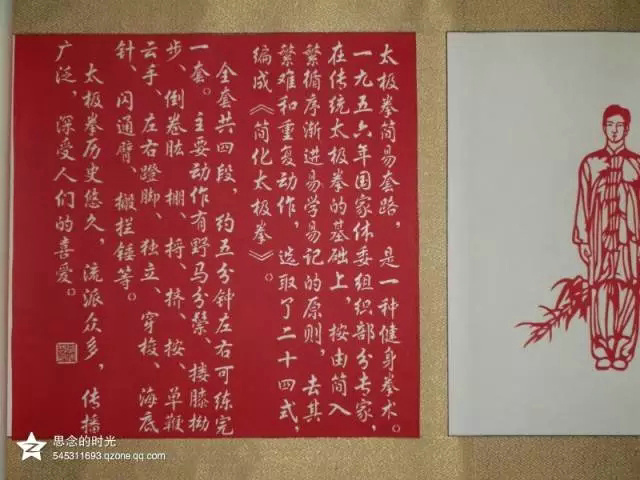 太极拳简易套路，是一种健身拳术。
一九五六年国家体委组织部分专家，
在传统太极拳的基础上，按由简入
繁循序渐进易学易记的原则，去其
繁难和重复动作，选取了二十四式，
编成《简化太极拳》。
全套共四段，约五分钟左右可练完
一套。主要动作有野马分鬃、搂膝拗
步、倒卷肱、掤、捋、挤、按、单鞭
云手、左右蹬脚、独立、穿梭、海底
针、闪通臂、搬拦锤等。
太极拳历史悠久，流派众多，传播
广泛，深受人们的喜爱。
思念的时光
545311693.qzone.qq.com